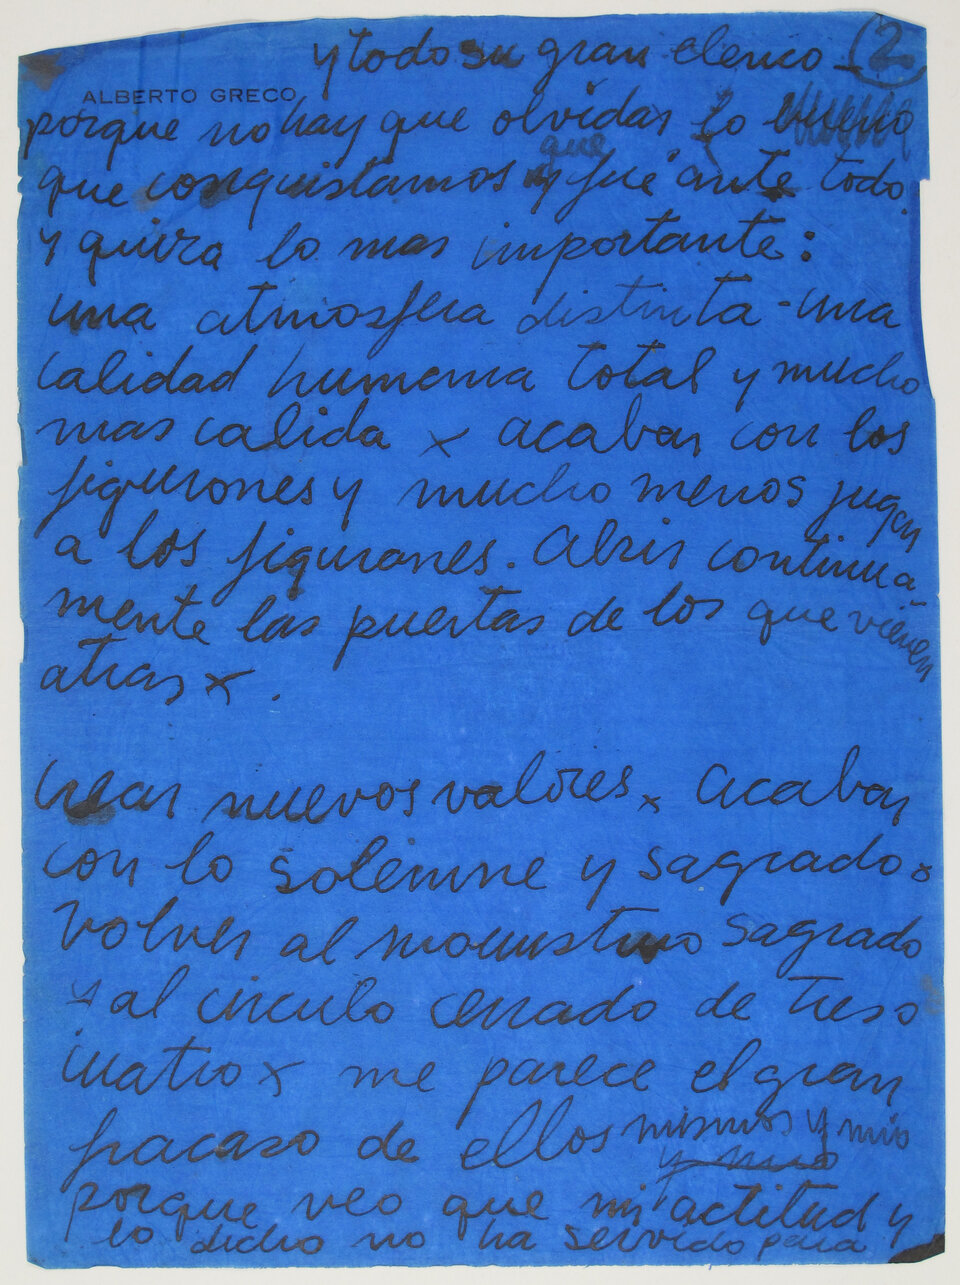 y todo su gran elenco - 2
ALBERTO GRECO
porque no hay que olvidar lo bueno
que conquistamos y que fué ante todo
y quiza lo mas importante:
una atmosfera distinta - una
calidad humana total y mucho
mas calida x acabar con los
figurones y mucho menos jugar
a los figurones. Abrir continua-
mente las puertas de los que vienen
atras x.
crear nuevos valores x acabar
con lo solemne y sagrado o
volver al monustruo sagrado
y al circulo cerrado de tres o
cuatro x me parece el gran
fracaso de ellos mismos y mio
y mio
porque veo que mi actitud y
lo dicho no ha servido para